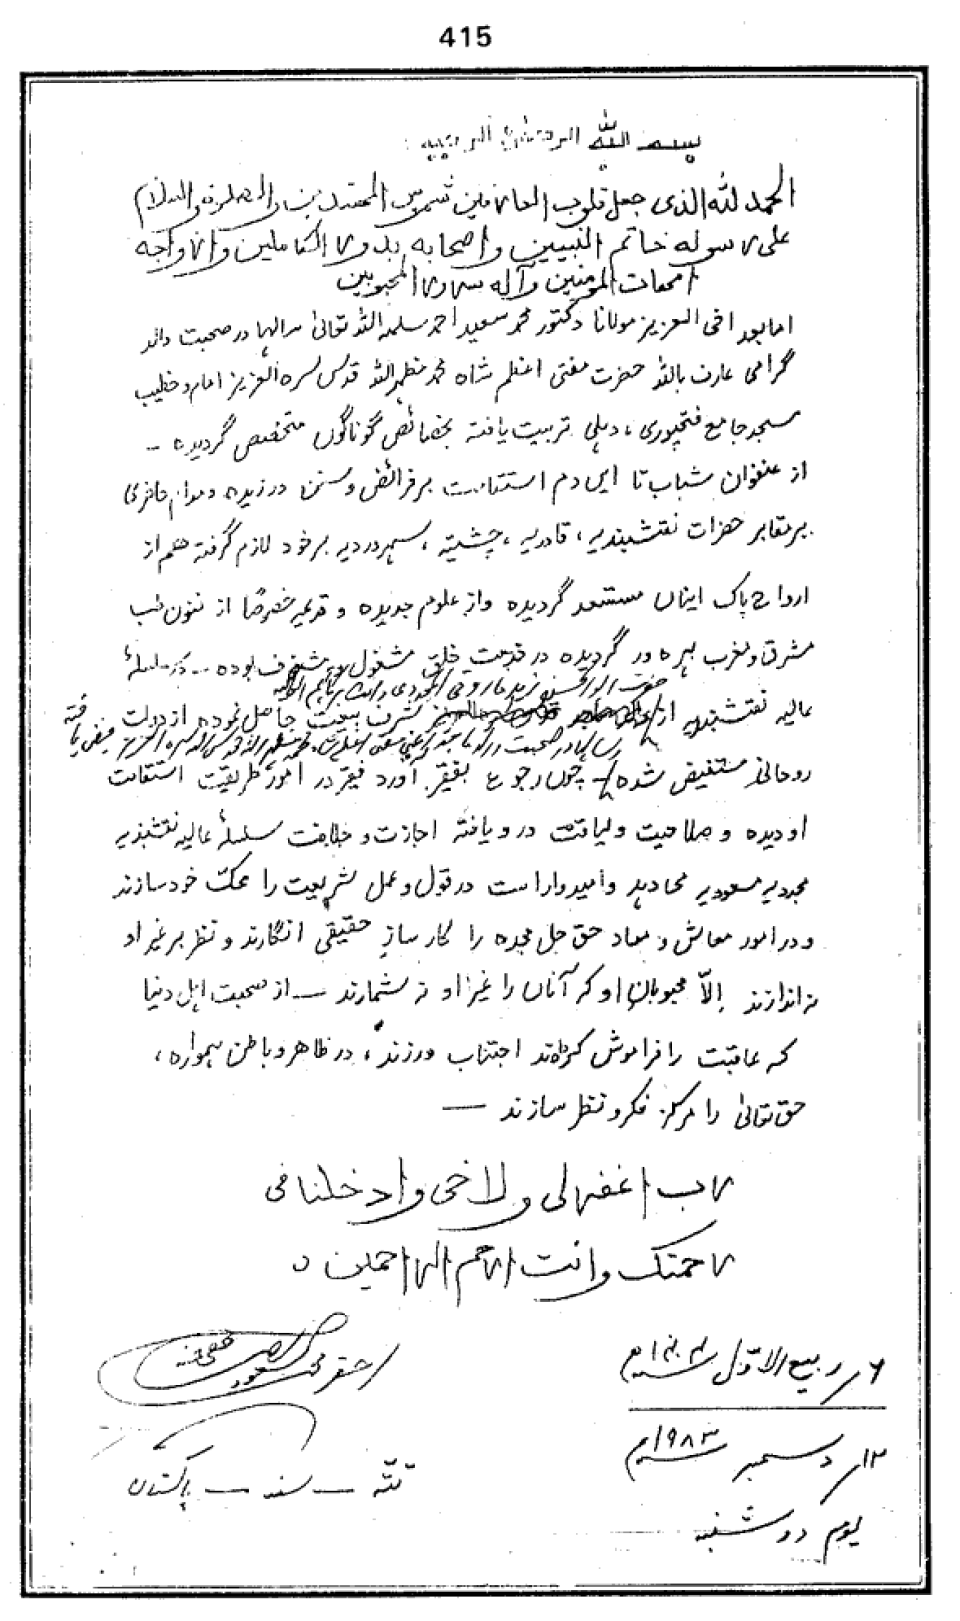 415
بسم الله الرحمٰن الرحیم
الحمد لله الذی جعل قلوب العارفین شموس المهتدین والصلوة والسلام
علی رسوله خاتم النبیین واصحابه بدور الکاملین وازواجه
امهات المومنین وآله سرور المحبوبین
اما بعد اخی العزیز مولانا دکتور محمد سعید احمد سلمه الله تعالیٰ سالہا در صحبت والد
گرامی عارف باللہ حضرت مفتی اعظم شاہ محمد مظہراللہ قدس سرہ العزیز امام و خطیب
مسجد جامع فتحپوری، دہلی تربیت یافتہ بخصائص گوناگوں متخصص گردیدہ —
از عنفوان شباب تا ایں دم استقامت بر فرائض و سنن ورزیدہ و دوام حاضری
بر مقابر حضرات نقشبندیہ، قادریہ، چشتیہ، سہروردیہ بر خود لازم گرفتہ ہم از
ارواح پاک ایناں مستعد گردیدہ و از علوم جدیدہ و قدیمہ خصوصًا از فنون طب
مشرق و مغرب بہرہ ور گردیدہ در خدمت خلق مشغول و مشغوف بودہ — در سلسلۂ
حضرت ابوالحسن زید فاروقی المجددی دامت برکاتہم العالیہ
عالیہ نقشبندیہ از شرف بیعت حاصل نمودہ از دولت
سالہا در صحبت والد ماجد مفتی اعظم شاہ محمد مظہر اللہ قدس اللہ سرہ العزیز فیض یافتہ
روحانی مستفیض شدہ — چوں رجوع بفقیر آورد فقیر در امور طریقت استقامت
او دیدہ و صلاحیت و لیاقت درو یافتہ اجازت و خلافت سلسلۂ عالیہ نقشبندیہ
مجددیہ مسعودیہ می‌دہد و امیدوار است در قول و عمل شریعت را محکّ خود سازند
و در امور معاش و معاد حق جل مجدہ را کار سازِ حقیقی انگارند و نظر بر غیر او
نہ اندازند الاّ محبوبانِ او کہ آناں را غیر او نہ شمارند — از صحبت اہل دنیا
کہ عاقبت را فراموش کردہ‌اند اجتناب ورزند، در ظاہر و باطن ہموارہ،
حق تعالیٰ را مرکز فکر و نظر سازند —
رب اغفرلی ولاخی وادخلنا فی
رحمتک وانت ارحم الراحمین ○
احقر محمد مسعود احمد عفی عنہ
ٹھٹہ — سندھ — پاکستان
۶/ ربیع الاوّل ۱۴۰۴ھ
۱۲/ دسمبر ۱۹۸۳ء
یوم دو شنبہ